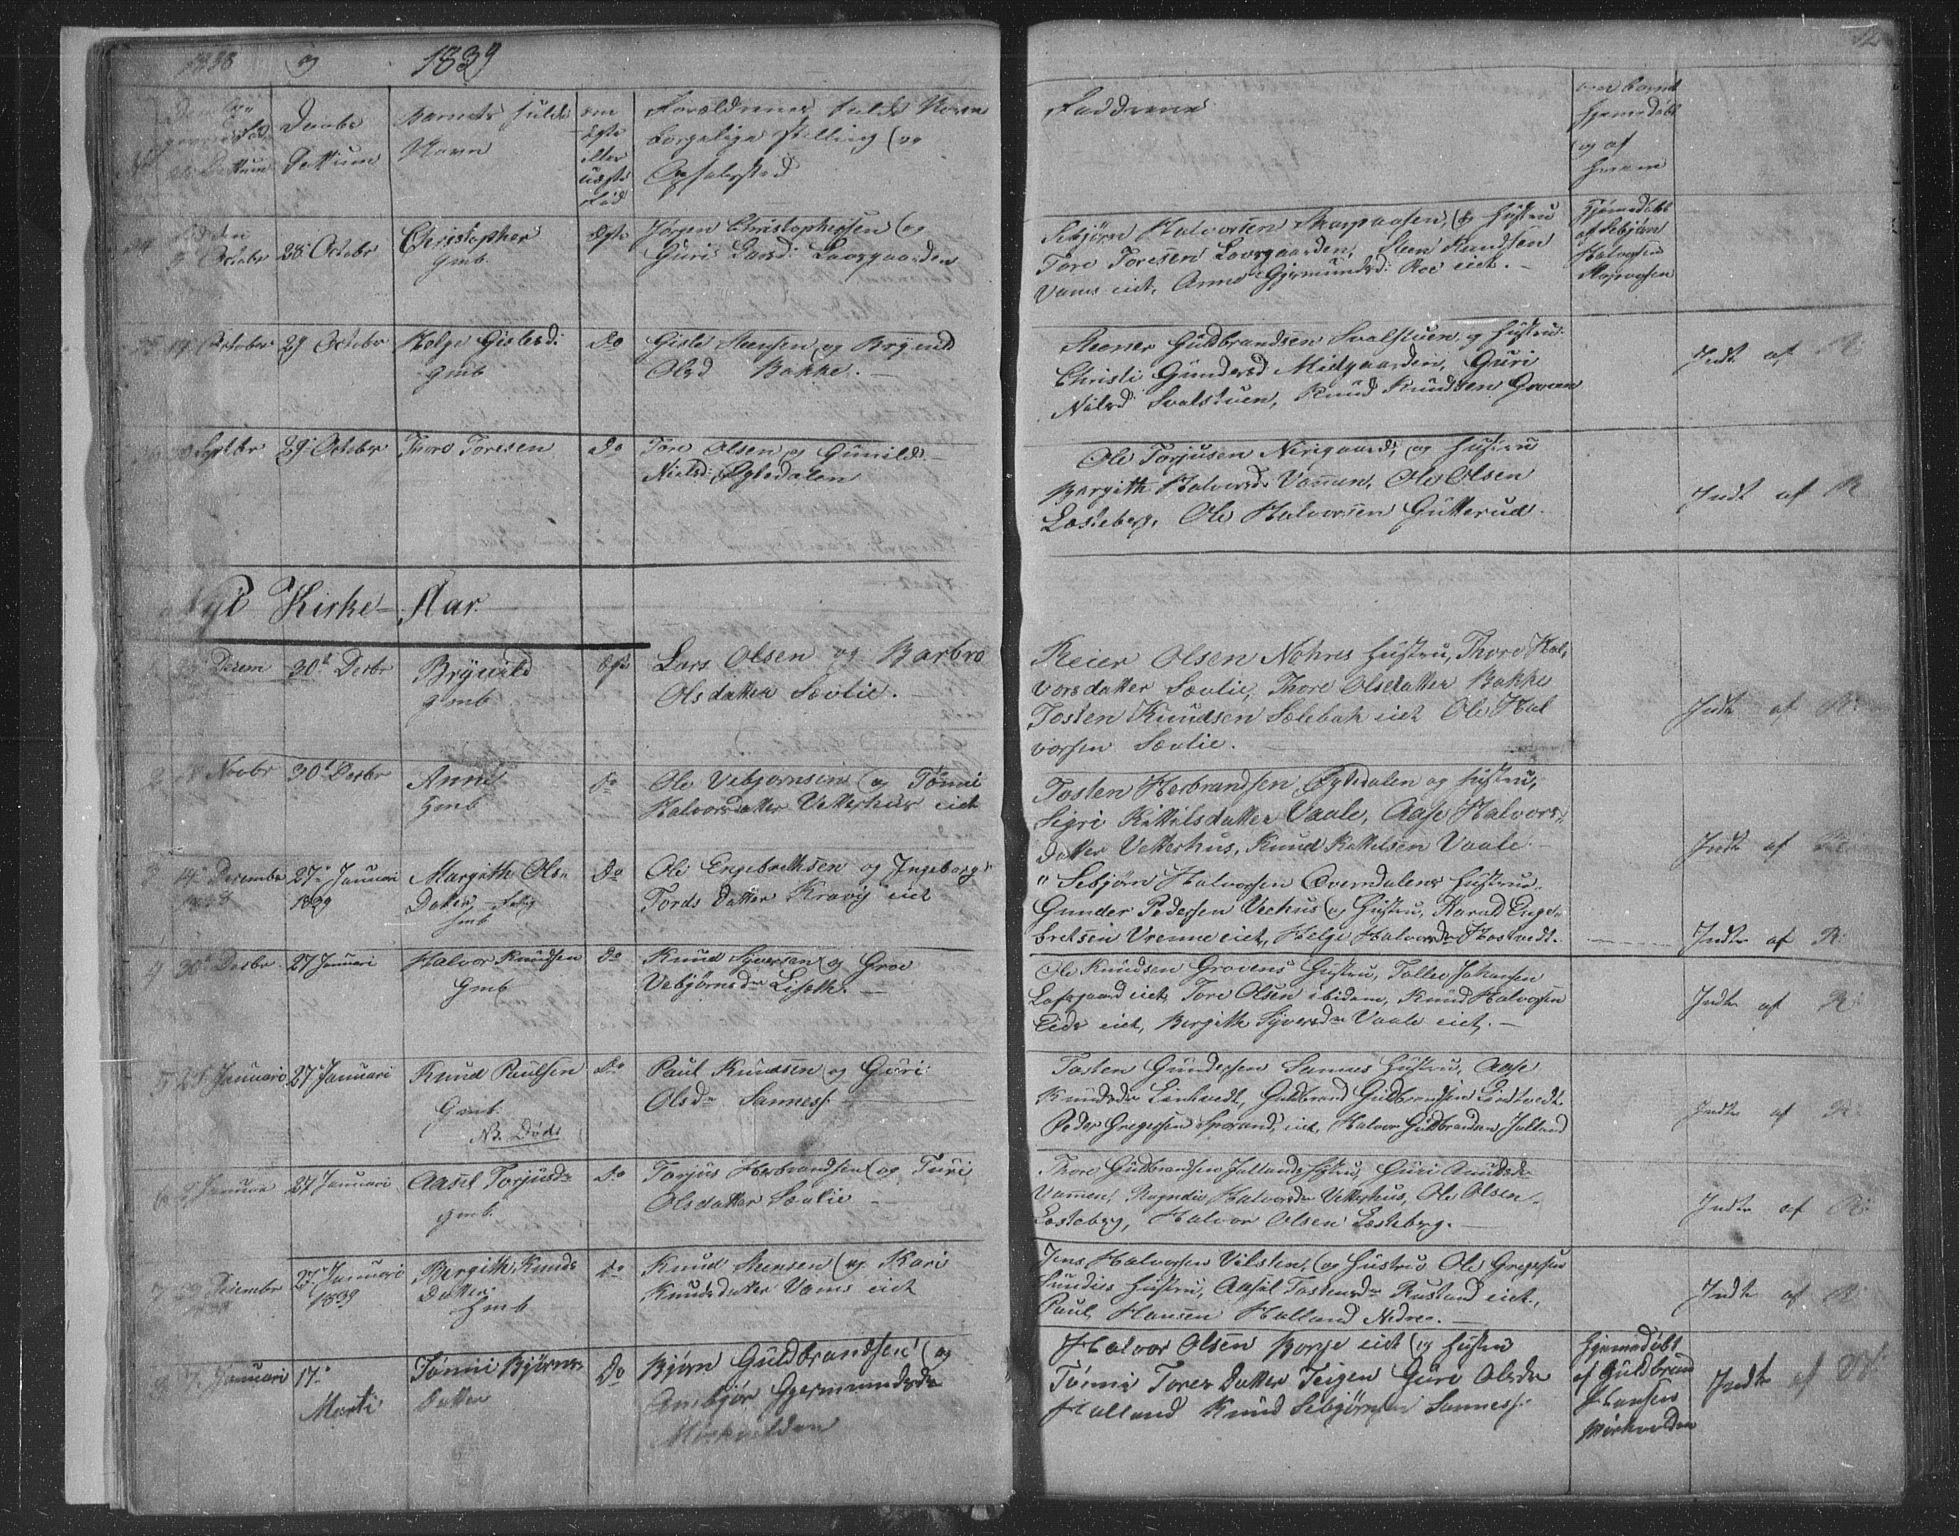 1838 og 1839
Daabs
Barnets fulde
om
Forældrenes fulde Navn
Dattum
Navn
ægte
borgelige Stilling og
eller
Opholdsted
uægte
Fød
Faddrene
om barnet
hjemedøbt
og af
hvem
24
October
28 October
Christopher
gmb
Ægte
Jørgen Christophersen og
Guri Larsd: Lovsgaarden
Sebjørn Halvorsen Skarpaasen, og Hustru
Tore Toresen Lovsgaarden, Sten Knudsen
Vams eiet, Anne Gjermundsd: Roe eiet.
Hjemedøbt
af Sebjørn
Halvorsen
October
29 October
Helge Gislesd:
gmb
Do
Gisle Steensen og Brynild
Olsd Bakke.
Steener Guldbrandsen Svalstuen, og Hustru
Christi Gundersd Midgaarden, Guri
Nielsd: Svalstuen, Knud Knudsen Groven
Indt af R:
Septbr
29 October
Thore Toresen
Do
Tore Olsen og Gunild
Nielsd: Øglsdalen
Ole Torjusen Nerigaard, og Hustru
Bergith Halvorsd: Vamen, Ole Olsen
Losteberg, Ole Halvorsen Gutterud.
Indt af R
Nyt Kirke-Aar.
1
Decem
30t Decbr
Brynild
gmb
Ægte
Lars Olsen og Barbro
Olsdatter Sævlie.
Reier Olsen Nohres Hustru, Thore Hal-
vorsdatter Sævlie, Thore Olsdatter Bakke
Tosten Knudsen Sælebak eiet Ole Hal
vorsen Sævlie.
Indt af R:
2
Novbr
30t Decbr
Anne
gmb
Do
Ole Vebjørnsen og Tønni
Halvorsdatter Vetterhus eiet
Tosten Herbrandsen Øglsdalen og Hustru,
Sigri Kittilsdatter Vaale, Aase Halvors-
datter Vetterhus, Knud Kittelsen Vaale
Indt af R
3
14 December
1838
27 Januari
1839
Margith Ols-
Datter
gmb
Do
Ole Engebrethsen og Ingeborg
Tords Datter Kravig eiet
" Sebjørn Halvorsen Overndalens Hustrue
Gunder Pedersen Vechus og Hustru, Harald Enge-
bretsen Vrenne eiet, Helge Halvorsdr Hostvedt.
Indt af R:
4
30t Decbr
27 Januari
Halvor Knudsen
gmb
Do
Knud Syversen og Groe
Vebjørnsdr Liseth.
Ole Knudsen Grovens Hustru, Tollev Johansen
Lofsgaard eiet, Tore Olsen ibidem, Knud Halvorsen
Eide eiet, Bergith Syversdr Vaale eiet.
Indt af R:
5
Januari
27 Januari
Knud Paulsen
gmb.
NB. Døds
Do
Paul Knudsen og Guri
Olsdr Sannes.
Tosten Gundersen Sannes Hustru, Aase
Knudsdr Lindvedt, Guldbrand Guldbrandsen Lindtvedt
Peder Gregersen Sporand, eiet, Halvor Guldbrandsen Jalland
Indt af R:
6
Januar
27 Januari
Aasil Torjusdr
gmb.
Do
Torjus Herbrandsen og Turi
Olsdatter Sævlie
Thore Guldbrandsen Jallands Hustru, Guri Knudsdr
Vamen, Ragndi Halvorsdr Vetterhus, Ole Olsen
Losteberg, Halvor Olsen Losteberg.
Indt af R:
7
29 Decembr
1838
27 Januari
1839
Bergith Knuds
Datter
gmb
Do
Knud Steensen og Kari
Knudsdatter Vams eiet
Jens Halvorsen Vilsten, og Hustru Ole Gregersen
Hustru, Aasil Tostensdr Rustand eiet,
Paul Hansen Halland Nedre.
Indt af R:
7 Januari
17
Marti
Tønni Bjørns-
Datter
Do
Bjørn Guldbrandsen og
Anebjør Gjermundsdr
Mørkvolden
Halvor Olsen Borge eiet og Hustru
Tønni Tores Datter Teigen Guri Olsdr
Halland Knud Sebjørnsen Sannes.
Hjemedøbt
af Guldbrand
Hansen
Mørkvolden
Indt af